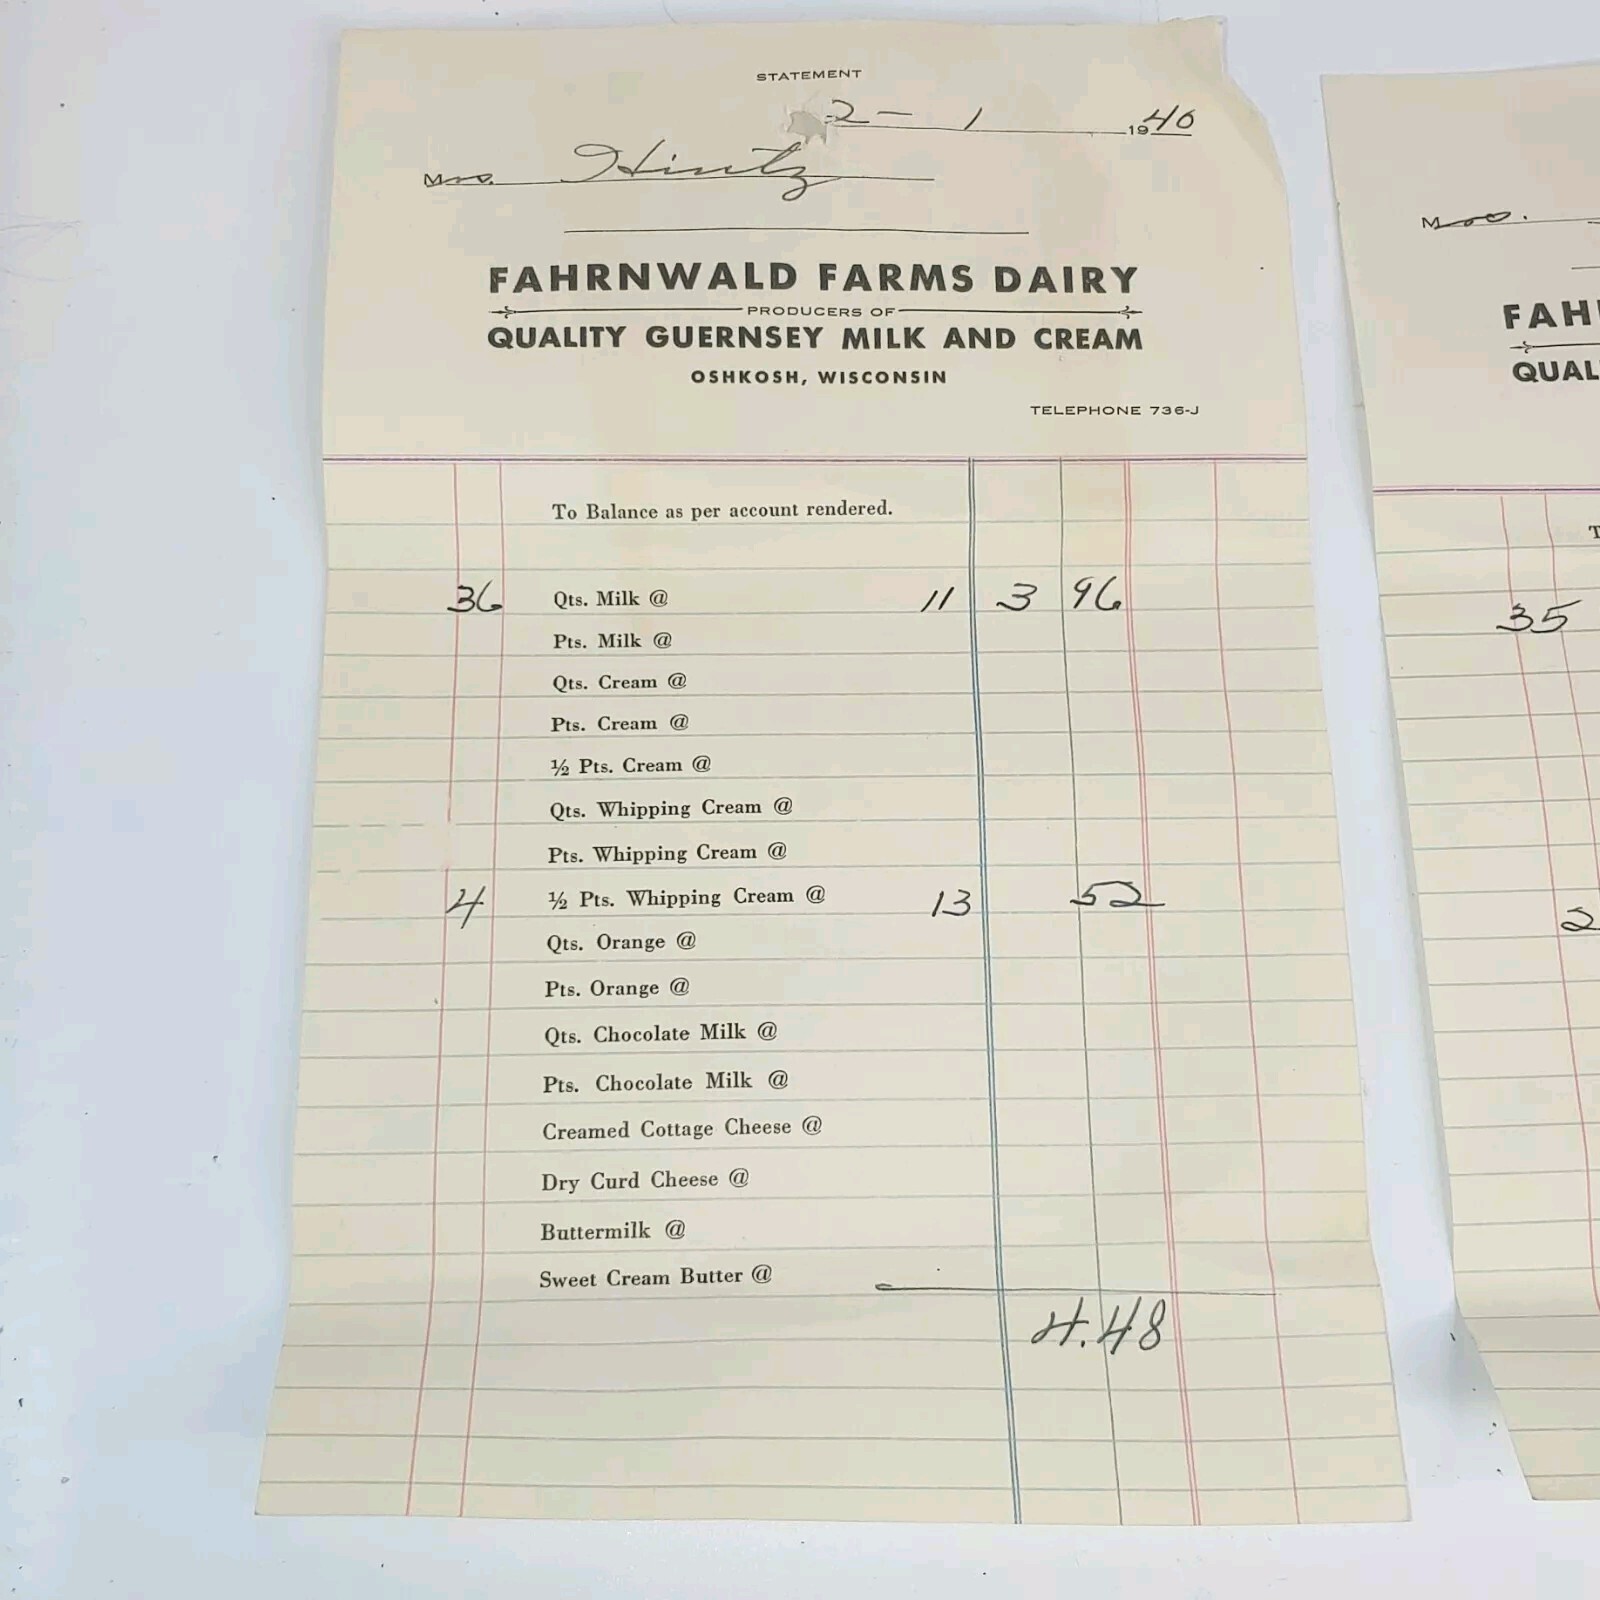 STATEMENT
2 - 1 1940
Mrs. Hintz
FAHRNWALD FARMS DAIRY
PRODUCERS OF
QUALITY GUERNSEY MILK AND CREAM
OSHKOSH, WISCONSIN
TELEPHONE 736-J
To Balance as per account rendered.
36 Qts. Milk @ 11 3 96
Pts. Milk @
Qts. Cream @
Pts. Cream @
½ Pts. Cream @
Qts. Whipping Cream @
Pts. Whipping Cream @
4 ½ Pts. Whipping Cream @ 13 52
Qts. Orange @
Pts. Orange @
Qts. Chocolate Milk @
Pts. Chocolate Milk @
Creamed Cottage Cheese @
Dry Curd Cheese @
Buttermilk @
Sweet Cream Butter @
4.48
Mrs.
FAH
QUAL
T
35
2